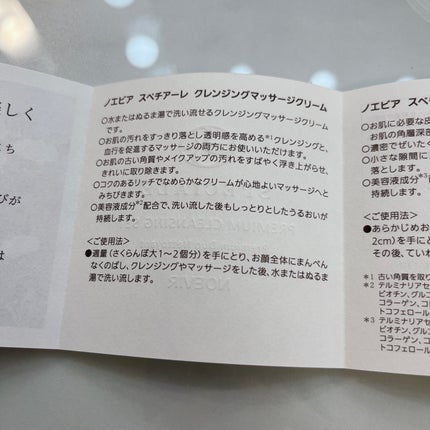 しく
ち
が
は
ノエビア スペチアーレ クレンジングマッサージクリーム
○水またはぬるま湯で洗い流せるクレンジングマッサージクリーム
です。
○お肌の汚れをすっきり落とし透明感を高める*1クレンジングと、
血行を促進するマッサージの両方にお使いいただけます。
○お肌の古い角質やメイクアップの汚れをすばやく浮き上がらせ、
きれいに取り除きます。
○コクのあるリッチでなめらかなクリームが心地よいマッサージへと
みちびきます。
○美容液成分*2配合で、洗い流した後もしっとりとしたうるおいが
持続します。
<ご使用法>
●適量（さくらんぼ大1〜2個分）を手にとり、お顔全体にまんべん
なくのばし、クレンジングやマッサージをした後、水またはぬるま
湯で洗い流します。
ノエビア スペ
○お肌に必要な皮
お肌の角層深部
○濃密でぜいたく
○小さな隙間に
落とします。
○美容液成分*3
持続します。
<ご使用法>
●あらかじめお
2cm）を手に
その後、ていね
*1 古い角質を取り
*2 テルミナリアセ
ビオチン、グル
コラーゲン、コ
トコフェロール
*3 テルミナリアセ
ビオチン、グル
コラーゲン、コ
トコフェロール